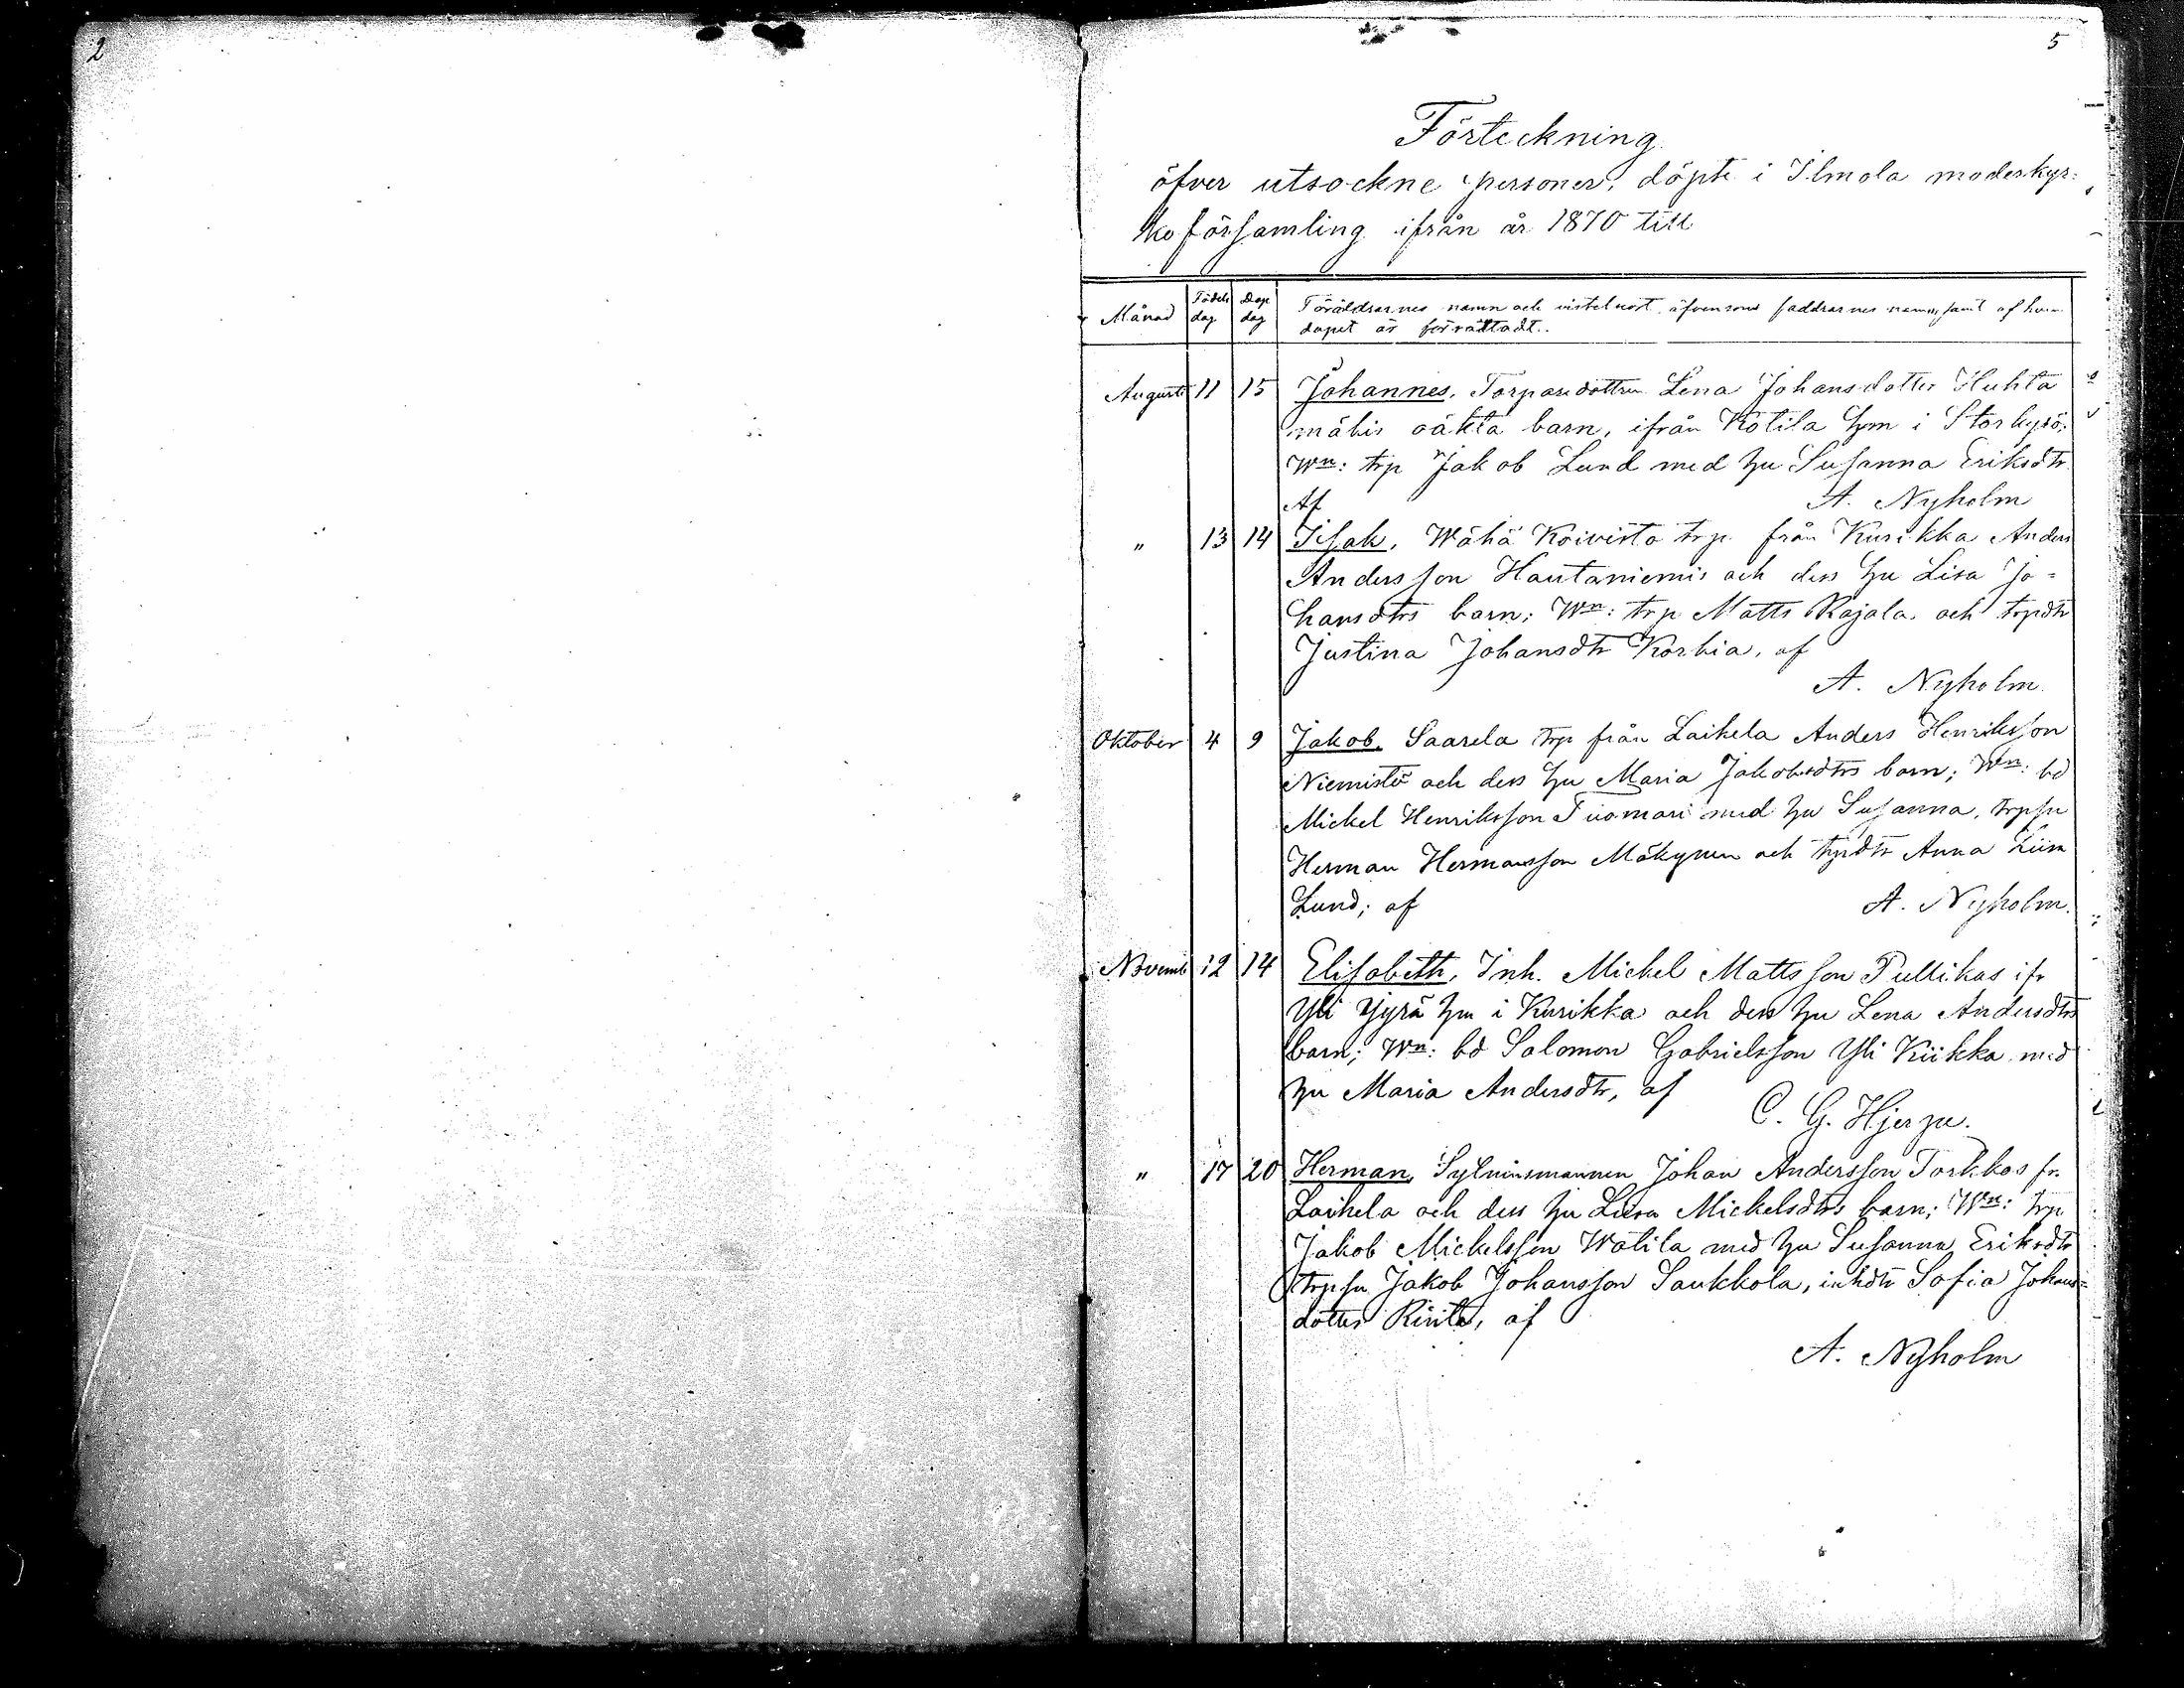 2
5
Förteckning
öfver utsockne personer, döpte i Ilmola moderkyr:
koförsamling ifrån år 1870 till
Månad Födels dag Dop dag Föräldrarnes namn och vistelseort äfvensom faddrarnes namn, samt af hvem
dopet är förrättadt.
Augusti 11 15 Johannes, Torparedottren Lena Johansdotter Huhta
mäkis oäkta barn, ifrån Kotila hm i Storkyrö;
Wn: trp Jakob Lund med hu Susanna Eriksdtr
Af A. Nyholm
" 13 14 Isak, Wähä Koivisto trp från Kurikka Anders
Andersson Hautaniemis och dess hu Lisa Jo=
hansdtrs barn; Wn: trp Matts Rajala och trpdtr
Justina Johansdtr Korhia, af
A. Nyholm
Oktober 4 9 Jakob, Saarela trp från Laihela Anders Henriksson
Niemistö och dess hu Maria Jakobsdtrs barn; Wn: bd
Mickel Henriksson Tuomari med hu Susanna, trpsn
Herman Hermansson Mäkynen och trpdtr Anna Liisa
Lund; af A. Nyholm.
Novemb 12 14 Elisabeth, Inh. Mickel Mattsson Pullikas ifr
Yli Jyrä hm i Kurikka och dess hu Lena Andersdtrs
barn; Wn: bd Salomon Gabrielsson Yli Kiikka med
hu Maria Andersdtr, af
C. G. Hjerpe.
" 17 20 Herman, Sytningsmannen Johan Andersson Torkkos fr.
Laihela och dess hu Liisa Mickelsdtrs barn; Wn: trp
Jakob Mickelsson Wätilä med hu Susanna Eriksdtr
trpsn Jakob Johansson Saukkola, inhdtr Sofia Johans=
dotter Rinta, af
A. Nyholm